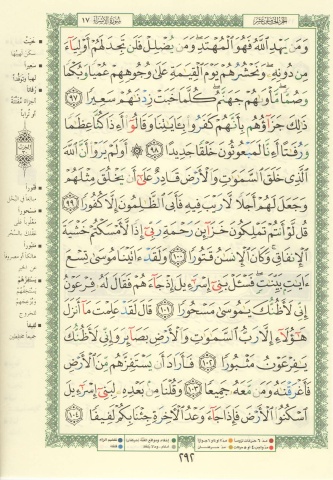 الجزء الخامس عشر
سورة الإسراء ١٧
وَمَن يَهْدِ ٱللَّهُ فَهُوَ ٱلْمُهْتَدِ وَمَن يُضْلِلْ فَلَن تَجِدَ لَهُمْ أَوْلِيَآءَ
مِن دُونِهِۦ وَنَحْشُرُهُمْ يَوْمَ ٱلْقِيَٰمَةِ عَلَىٰ وُجُوهِهِمْ عُمْيًا وَبُكْمًا
وَصُمًّا مَّأْوَىٰهُمْ جَهَنَّمُ كُلَّمَا خَبَتْ زِدْنَٰهُمْ سَعِيرًا ٩٧
ذَٰلِكَ جَزَآؤُهُم بِأَنَّهُمْ كَفَرُوا۟ بِـَٔايَٰتِنَا وَقَالُوٓا۟ أَءِذَا كُنَّا عِظَٰمًا
وَرُفَٰتًا أَءِنَّا لَمَبْعُوثُونَ خَلْقًا جَدِيدًا ٩٨ أَوَلَمْ يَرَوْا۟ أَنَّ ٱللَّهَ
ٱلَّذِى خَلَقَ ٱلسَّمَٰوَٰتِ وَٱلْأَرْضَ قَادِرٌ عَلَىٰٓ أَن يَخْلُقَ مِثْلَهُمْ
وَجَعَلَ لَهُمْ أَجَلًا لَّا رَيْبَ فِيهِ فَأَبَى ٱلظَّٰلِمُونَ إِلَّا كُفُورًا ٩٩
قُل لَّوْ أَنتُمْ تَمْلِكُونَ خَزَآئِنَ رَحْمَةِ رَبِّىٓ إِذًا لَّأَمْسَكْتُمْ خَشْيَةَ
ٱلْإِنفَاقِ وَكَانَ ٱلْإِنسَٰنُ قَتُورًا ١٠٠ وَلَقَدْ ءَاتَيْنَا مُوسَىٰ تِسْعَ
ءَايَٰتٍۭ بَيِّنَٰتٍ فَسْـَٔلْ بَنِىٓ إِسْرَٰٓءِيلَ إِذْ جَآءَهُمْ فَقَالَ لَهُۥ فِرْعَوْنُ
إِنِّى لَأَظُنُّكَ يَٰمُوسَىٰ مَسْحُورًا ١٠١ قَالَ لَقَدْ عَلِمْتَ مَآ أَنزَلَ
هَٰٓؤُلَآءِ إِلَّا رَبُّ ٱلسَّمَٰوَٰتِ وَٱلْأَرْضِ بَصَآئِرَ وَإِنِّى لَأَظُنُّكَ
يَٰفِرْعَوْنُ مَثْبُورًا ١٠٢ فَأَرَادَ أَن يَسْتَفِزَّهُم مِّنَ ٱلْأَرْضِ
فَأَغْرَقْنَٰهُ وَمَن مَّعَهُۥ جَمِيعًا ١٠٣ وَقُلْنَا مِنۢ بَعْدِهِۦ لِبَنِىٓ إِسْرَٰٓءِيلَ
ٱسْكُنُوا۟ ٱلْأَرْضَ فَإِذَا جَآءَ وَعْدُ ٱلْءَاخِرَةِ جِئْنَا بِكُمْ لَفِيفًا ١٠٤
٢٩٢
خبت
سكن لهيبها
سعيرا
رفاتا
قتورا
مسحورا
مثبورا
يستفزهم
لفيفا